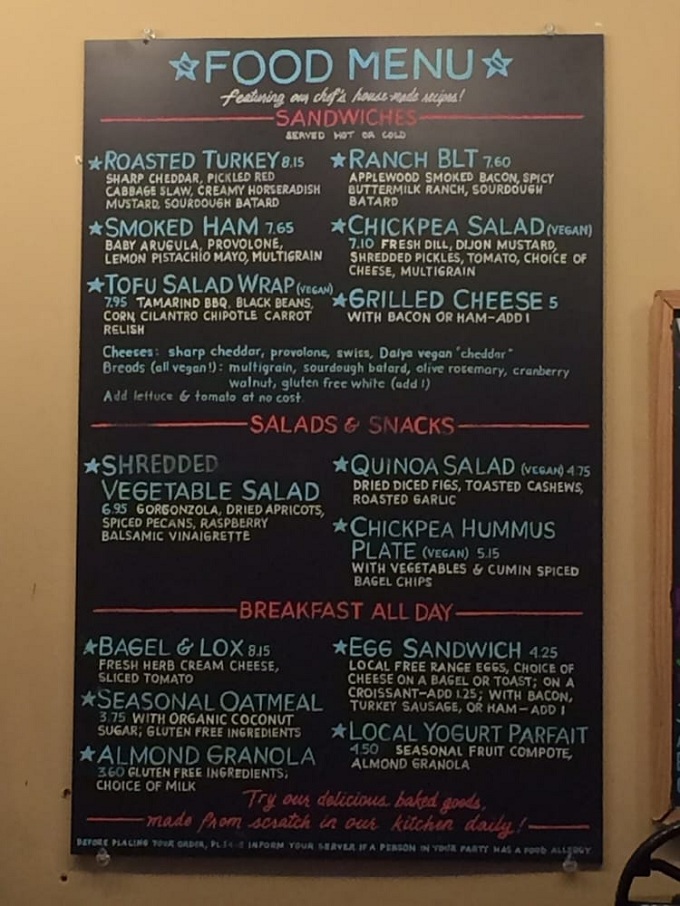 FOOD MENU
featuring our chef's house-made recipes!
SANDWICHES
SERVED HOT OR COLD
ROASTED TURKEY 8.15
SHARP CHEDDAR, PICKLED RED
CABBAGE SLAW, CREAMY HORSERADISH
MUSTARD, SOURDOUGH BATARD
SMOKED HAM 7.65
BABY ARUGULA, PROVOLONE,
LEMON PISTACHIO MAYO, MULTIGRAIN
TOFU SALAD WRAP (VEGAN)
7.95 TAMARIND BBQ, BLACK BEANS,
CORN, CILANTRO CHIPOTLE CARROT
RELISH
RANCH BLT 7.60
APPLEWOOD SMOKED BACON, SPICY
BUTTERMILK RANCH, SOURDOUGH
BATARD
CHICKPEA SALAD (VEGAN)
7.10 FRESH DILL, DIJON MUSTARD,
SHREDDED PICKLES, TOMATO, CHOICE OF
CHEESE, MULTIGRAIN
GRILLED CHEESE 5
WITH BACON OR HAM-ADD 1
Cheeses: sharp cheddar, provolone, swiss, Daiya vegan "cheddar"
Breads (all vegan!): multigrain, sourdough batard, olive rosemary, cranberry
walnut, gluten free white (add 1)
Add lettuce & tomato at no cost.
SALADS & SNACKS
SHREDDED
VEGETABLE SALAD
6.95 GORGONZOLA, DRIED APRICOTS,
SPICED PECANS, RASPBERRY
BALSAMIC VINAIGRETTE
QUINOA SALAD (VEGAN) 4.75
DRIED DICED FIGS, TOASTED CASHEWS,
ROASTED GARLIC
CHICKPEA HUMMUS
PLATE (VEGAN) 5.15
WITH VEGETABLES & CUMIN SPICED
BAGEL CHIPS
BREAKFAST ALL DAY
BAGEL & LOX 8.15
FRESH HERB CREAM CHEESE,
SLICED TOMATO
SEASONAL OATMEAL
3.75 WITH ORGANIC COCONUT
SUGAR; GLUTEN FREE INGREDIENTS
ALMOND GRANOLA
3.60 GLUTEN FREE INGREDIENTS;
CHOICE OF MILK
EGG SANDWICH 4.25
LOCAL FREE RANGE EGGS, CHOICE OF
CHEESE ON A BAGEL OR TOAST; ON A
CROISSANT-ADD 1.25; WITH BACON,
TURKEY SAUSAGE, OR HAM-ADD 1
LOCAL YOGURT PARFAIT
4.50 SEASONAL FRUIT COMPOTE,
ALMOND GRANOLA
Try our delicious baked goods,
made from scratch in our kitchen daily!
BEFORE PLACING YOUR ORDER, PLEASE INFORM YOUR SERVER IF A PERSON IN YOUR PARTY HAS A FOOD ALLERGY